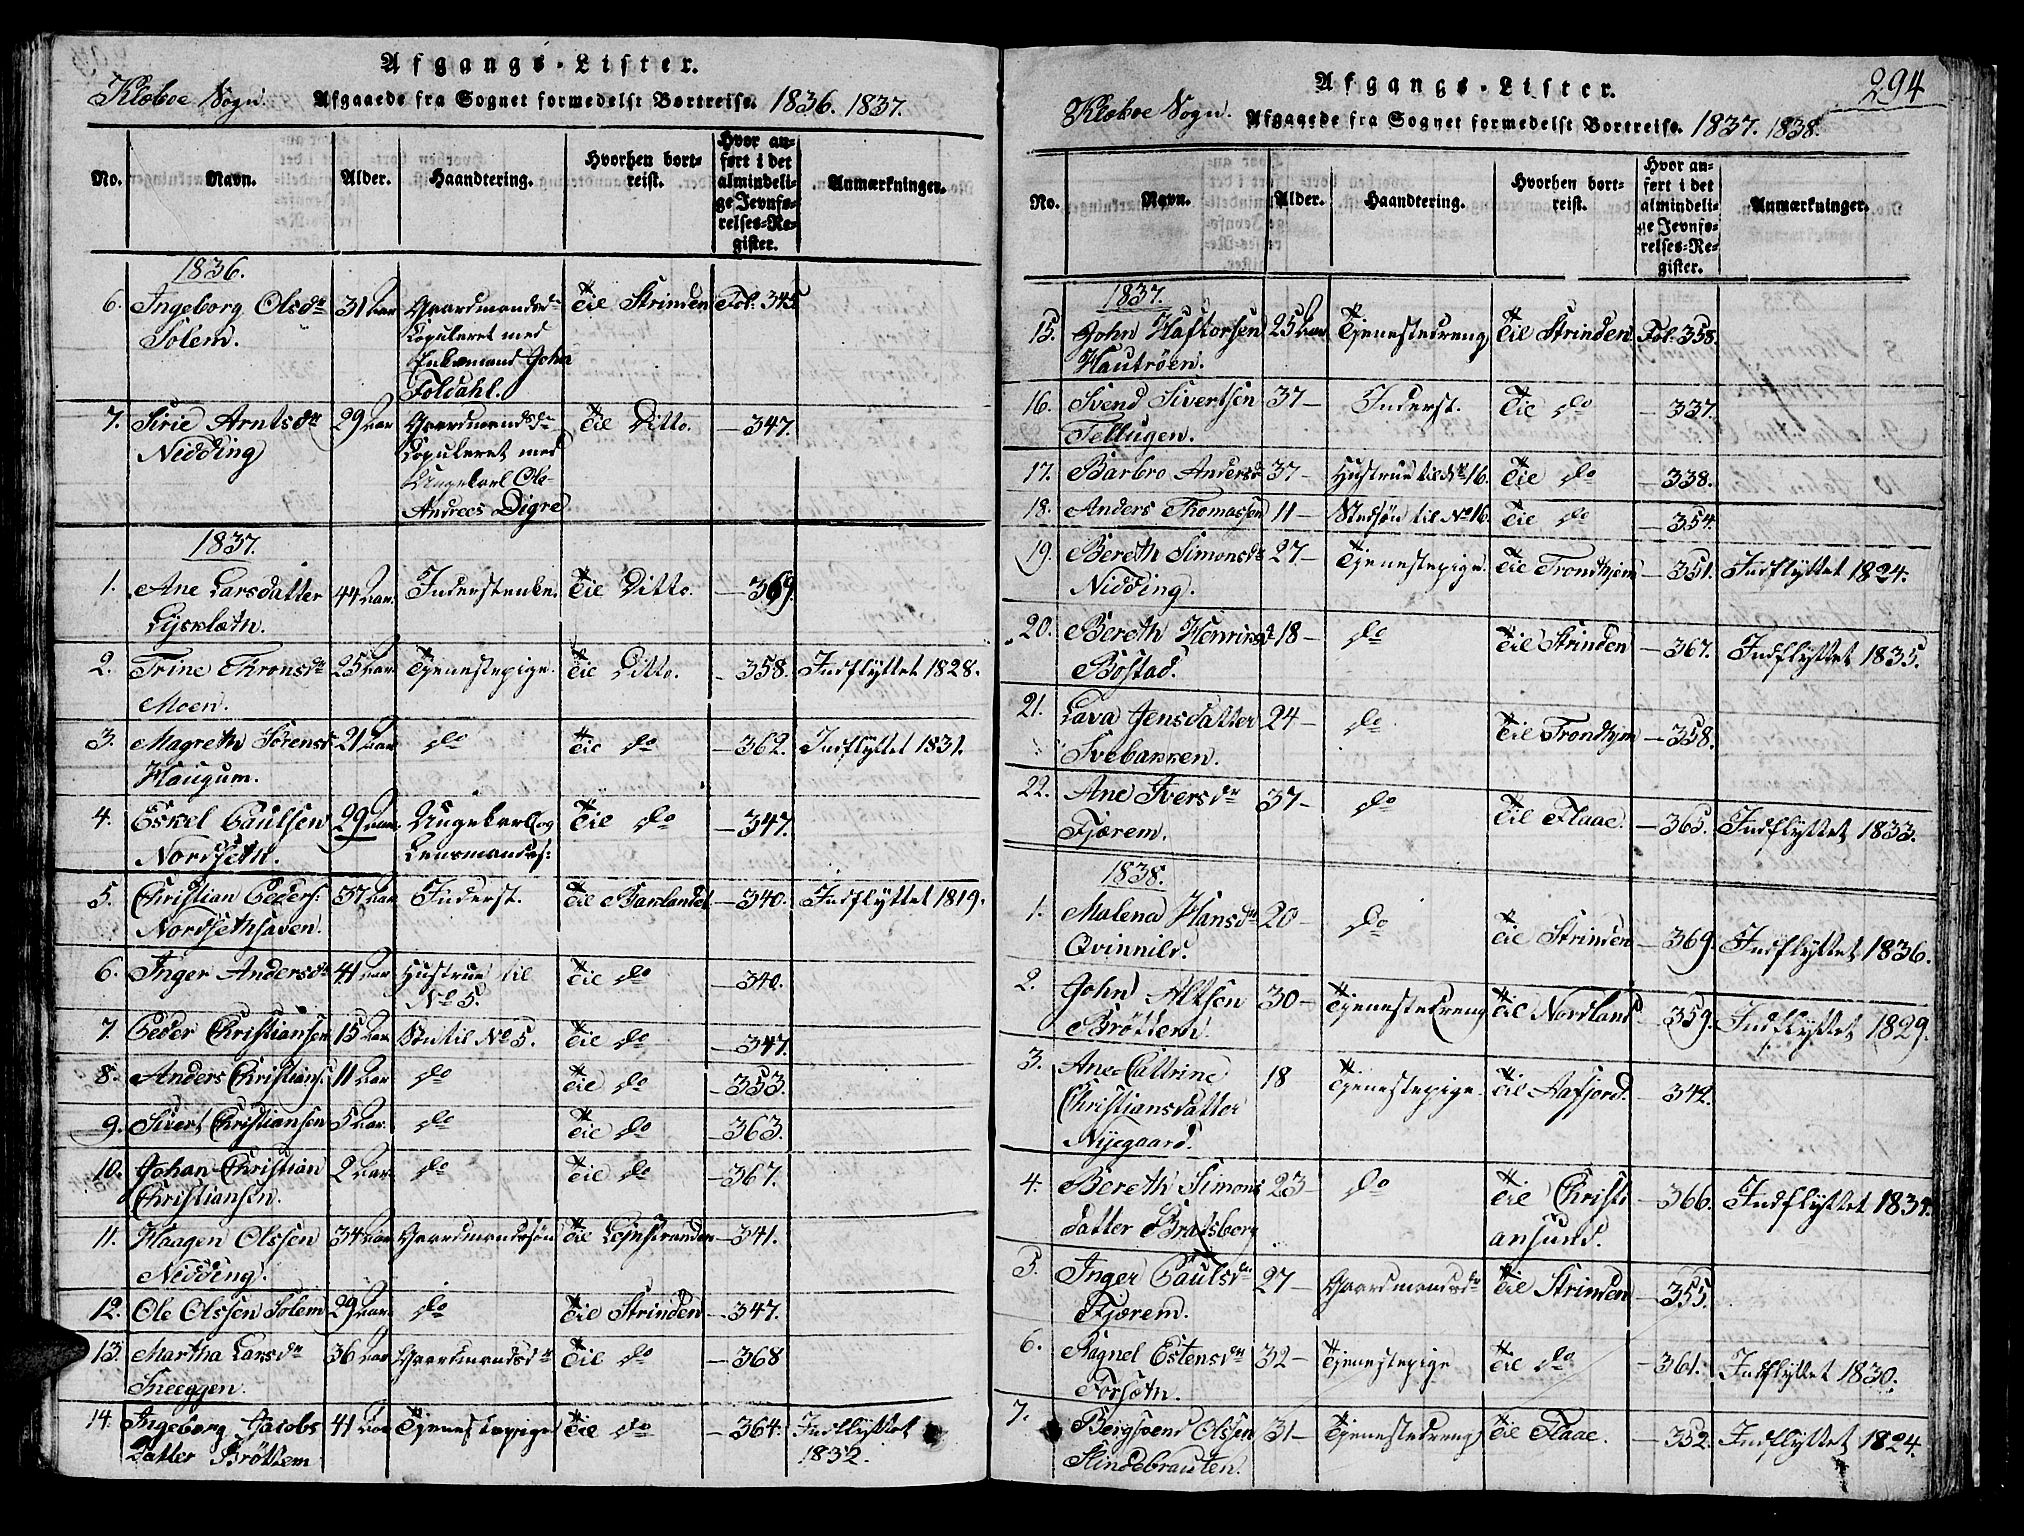 Afgangs-Lister.
Klæboe Sogn. Afgaaede fra Sognet formedelst Bortreise. 1836. 1837.
No. Navn. Alder. Haandtering. Hvorhen bortreist. Hvor anført i det almindelige Jevnførelses-Register. Anmærkninger.
1836.
6. Ingeborg Olsdr 31 Aar Gaardmandsdr til Strinden Fol. 345
Solem. Copuleret med
Enkemand John
Foldahl.
7. Sirie Arntsdr 29 Aar Gaardmandsdr til Ditto. — 347.
Nidding Copuleret med
Ungekarl Ole
Andrees Digre
1837.
1. Ane Larsdatter 44 Aar. Inderstenke. til Ditto. — 369.
Lysklæth.
2. Trine Thronsdr 25 Aar Tjenestepige. til Ditto. — 358. Indflyttet 1828.
Moen.
3. Magreth Sørensd 21 Aar do til do — 362. Indflyttet 1831.
Haugum.
4. Eskel Paulsen 29 Aar Ungekarl og til do — 347.
Nordseth. Lensmandss:
5. Christian Peders: 37 Aar Inderst. til Baklandet — 340. Indflyttet 1819.
Nordsethhaven.
6. Inger Andersdr 41 Aar Hustrue til til do — 340.
No 5.
7. Peder Christiansen 15 Aar Søn til No 5. til do — 347.
8. Anders Christians: 11 Aar do til do — 353.
9. Sivert Christiansen 5 Aar. do til do — 363.
10. Johan Christian 2 Aar do til do — 367.
Christiansen.
11. Haagen Olssen 34 Aar Gaardmandssøn til Leinstranden — 341.
Nidding.
12. Ole Olssen Solem 29 Aar do til Strinden — 347.
13. Martha Larsdr 36 Aar Gaardmandsdr til do — 368
Sneeggen.
14. Ingeborg Jacobs 41 Aar Tjenestepige til do — 364. Indflyttet
datter Brøttem 1832.
Afgangs-Lister. 294
Klæboe Sogn. Afgaaede fra Sognet formedelst Bortreise. 1837. 1838.
No. Navn. Alder. Haandtering. Hvorhen bortreist. Hvor anført i det almindelige Jevnførelses-Register. Anmærkninger.
1837.
15. John Hastorsen 25 Aar Tjenestedreng til Strinden Fol. 358.
Hautrøen.
16. Svend Sivertsen 37 — Inderst. til do — 337.
Tellugen.
17. Barbro Andersd 37 — Hustrue til No 16. til do — 338.
18. Anders Thomassen 11 — Stedsøn til No 16. til do — 354.
19. Bereth Simonsdr 27 — Tjenestepige. til Trondhjem — 351. Indflyttet 1824.
Nidding.
20. Bereth Henriksd 18 — do til Strinden — 367. Indflyttet 1835.
Bostad.
21. Lava Jensdatter 24 — do til Trondhjem — 358.
Svebakken.
22. Ane Iversdr 37 — do til Flaae. — 365. Indflyttet 1833.
Fjærem.
1838.
1. Malena Hansdr 20 — do til Strinden — 369. Indflyttet 1836.
Qvinnild.
2. John Altsen 30 — Tjenestedreng til Nordland — 359. Indflyttet 1829.
Brøttem.
3. Ane Cattrine 18 Tjenestepige. til Aafjord. — 342.
Christiansdatter
Nyegaard.
4. Bereth Simons 23 — do til Christi — 366. Indflyttet 1834.
datter Bratsberg ansund.
5. Inger Paulsdr 27 — Gaardmandsdr til Strinden — 355.
Fjærem.
6. Ragnel Estensdr 32 — Tjenestepige til do — 361. Indflyttet 1830.
Forsætn.
7. Bergsvend Olssen 31 — Tjenestedreng til Flaae. — 352. Indflyttet 1824.
Stindebrauten.